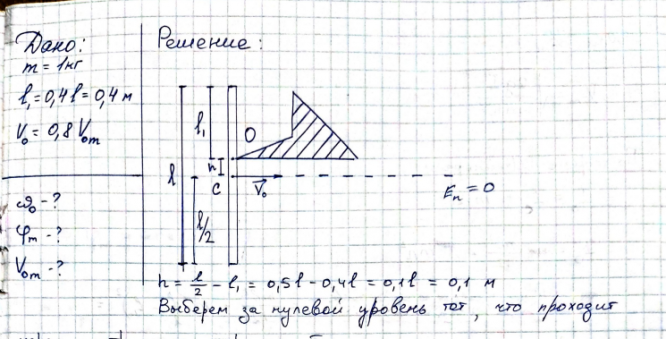 Дано:
m = 1 кг
l₁ = 0,4 l = 0,4 м
V₀ = 0,8 V₀m
ω₀ - ?
φm - ?
V₀m - ?
Решение:
l
l₁
O
h
C
V₀
l/2
Eп = 0
h = l/2 - l₁ = 0,5 l - 0,4 l = 0,1 l = 0,1 м
Выберем за нулевой уровень тот, что проходит